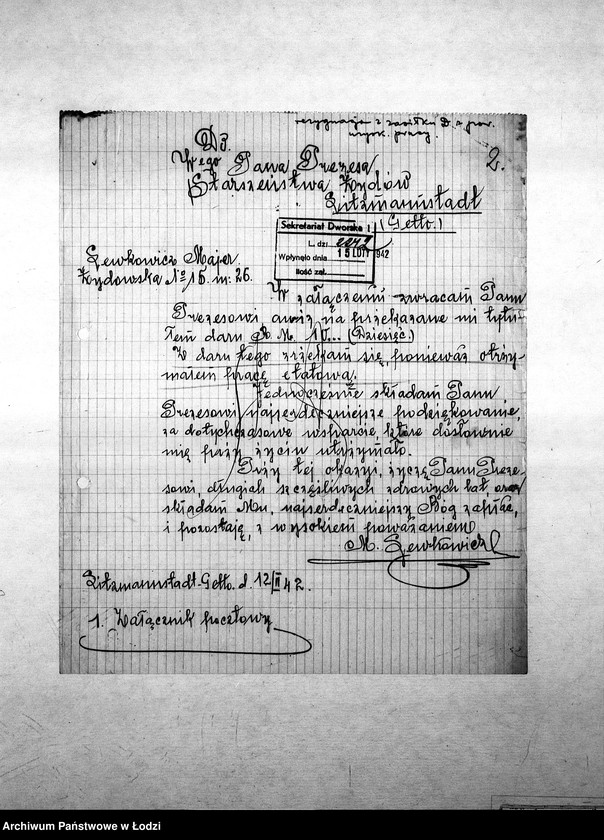 rezygnacja z zasiłku D. z pow.
uzysk. pracy.
2.
Do
W-ego Pana Prezesa
Starszeństwa Żydów
Litzmannstadt
(Getto.)
Sekretariat Dworska 1
L. dz.
Wpłynęło dnia 15 LUTY 1942
Ilość zał.
Lewkowicz Majer.
Żydowska № 15. m: 26.
W załączeniu zwracam Panu
Prezesowi, awiz na przekazane mi tytu-
łem daru R. M. 10... (Dziesięć.)
Z daru tego zrzekam się, ponieważ otrzy-
małem pracę etatową.
Jednocześnie składam Panu
Prezesowi najserdeczniejsze podziękowanie,
za dotychczasowe wsparcie, które dosłownie
mię przy życiu utrzymało.
Przy tej okazyi, życzę Panu Preze-
sowi, długich szczęśliwych zdrowych lat, oraz
składam Mu, najserdeczniejszy Bóg zapłać,
i pozostaję, z wysokiem poważaniem
M. Lewkowicz
Litzmannstadt-Getto. d. 12/II 42.
1. Załącznik pocztowy
Archiwum Państwowe w Łodzi